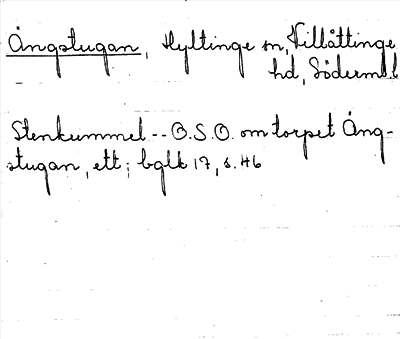 Ängstugan, Hyltinge sn, Villåttinge
hd, Söderml
Stenkummel -- O.S.O. om torpet Äng-
stugan, ett; bglk 17, s. 46